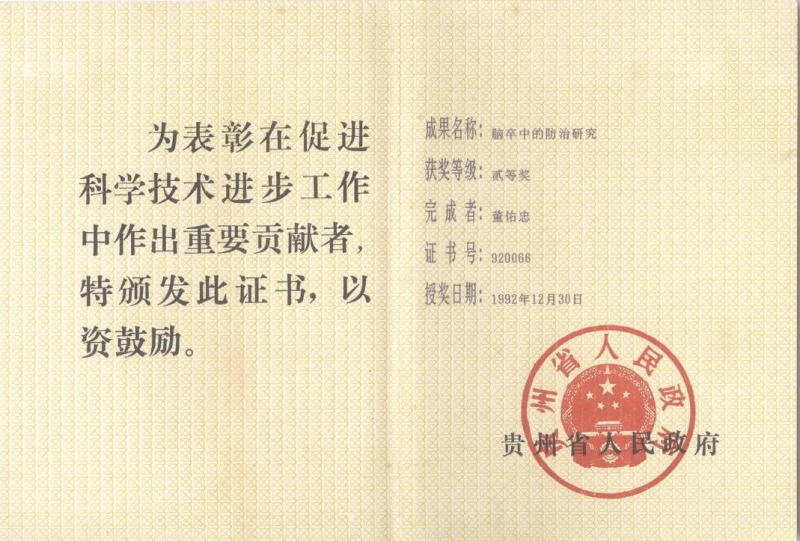 为表彰在促进
科学技术进步工作
中作出重要贡献者,
特颁发此证书，以
资鼓励。
成果名称：脑卒中的防治研究
获奖等级：贰等奖
完成者：董佑忠
证书号：920066
授奖日期：1992年12月30日
贵州省人民政府
贵州省人民政府